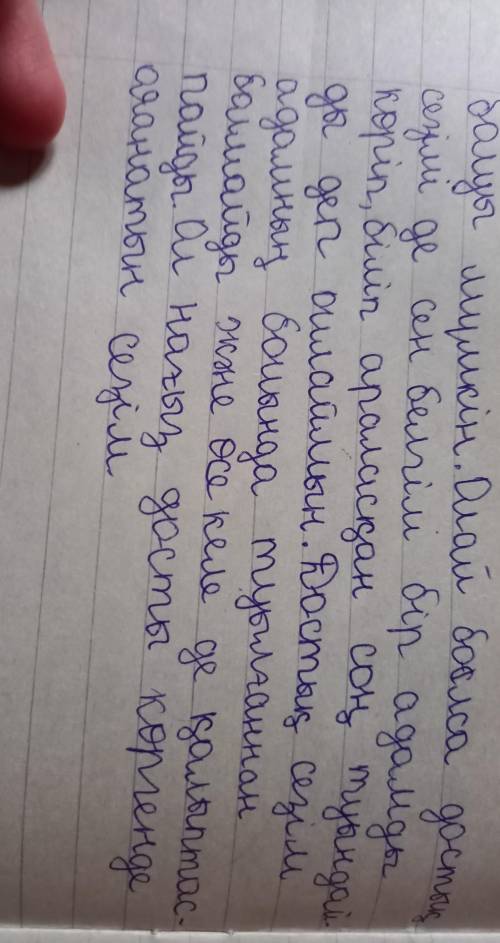 болуы мүмкін. Олай болса достық
сезімі де сен белгілі бір адамды
көріп, біліп араласқан соң туындай-
ды деп ойлаймын. Достық сезім
адамның бойында туылғаннан
болмайды және өсе келе де қалыптас-
пайды. Ол нағыз досты көргенде
оянатын сезім